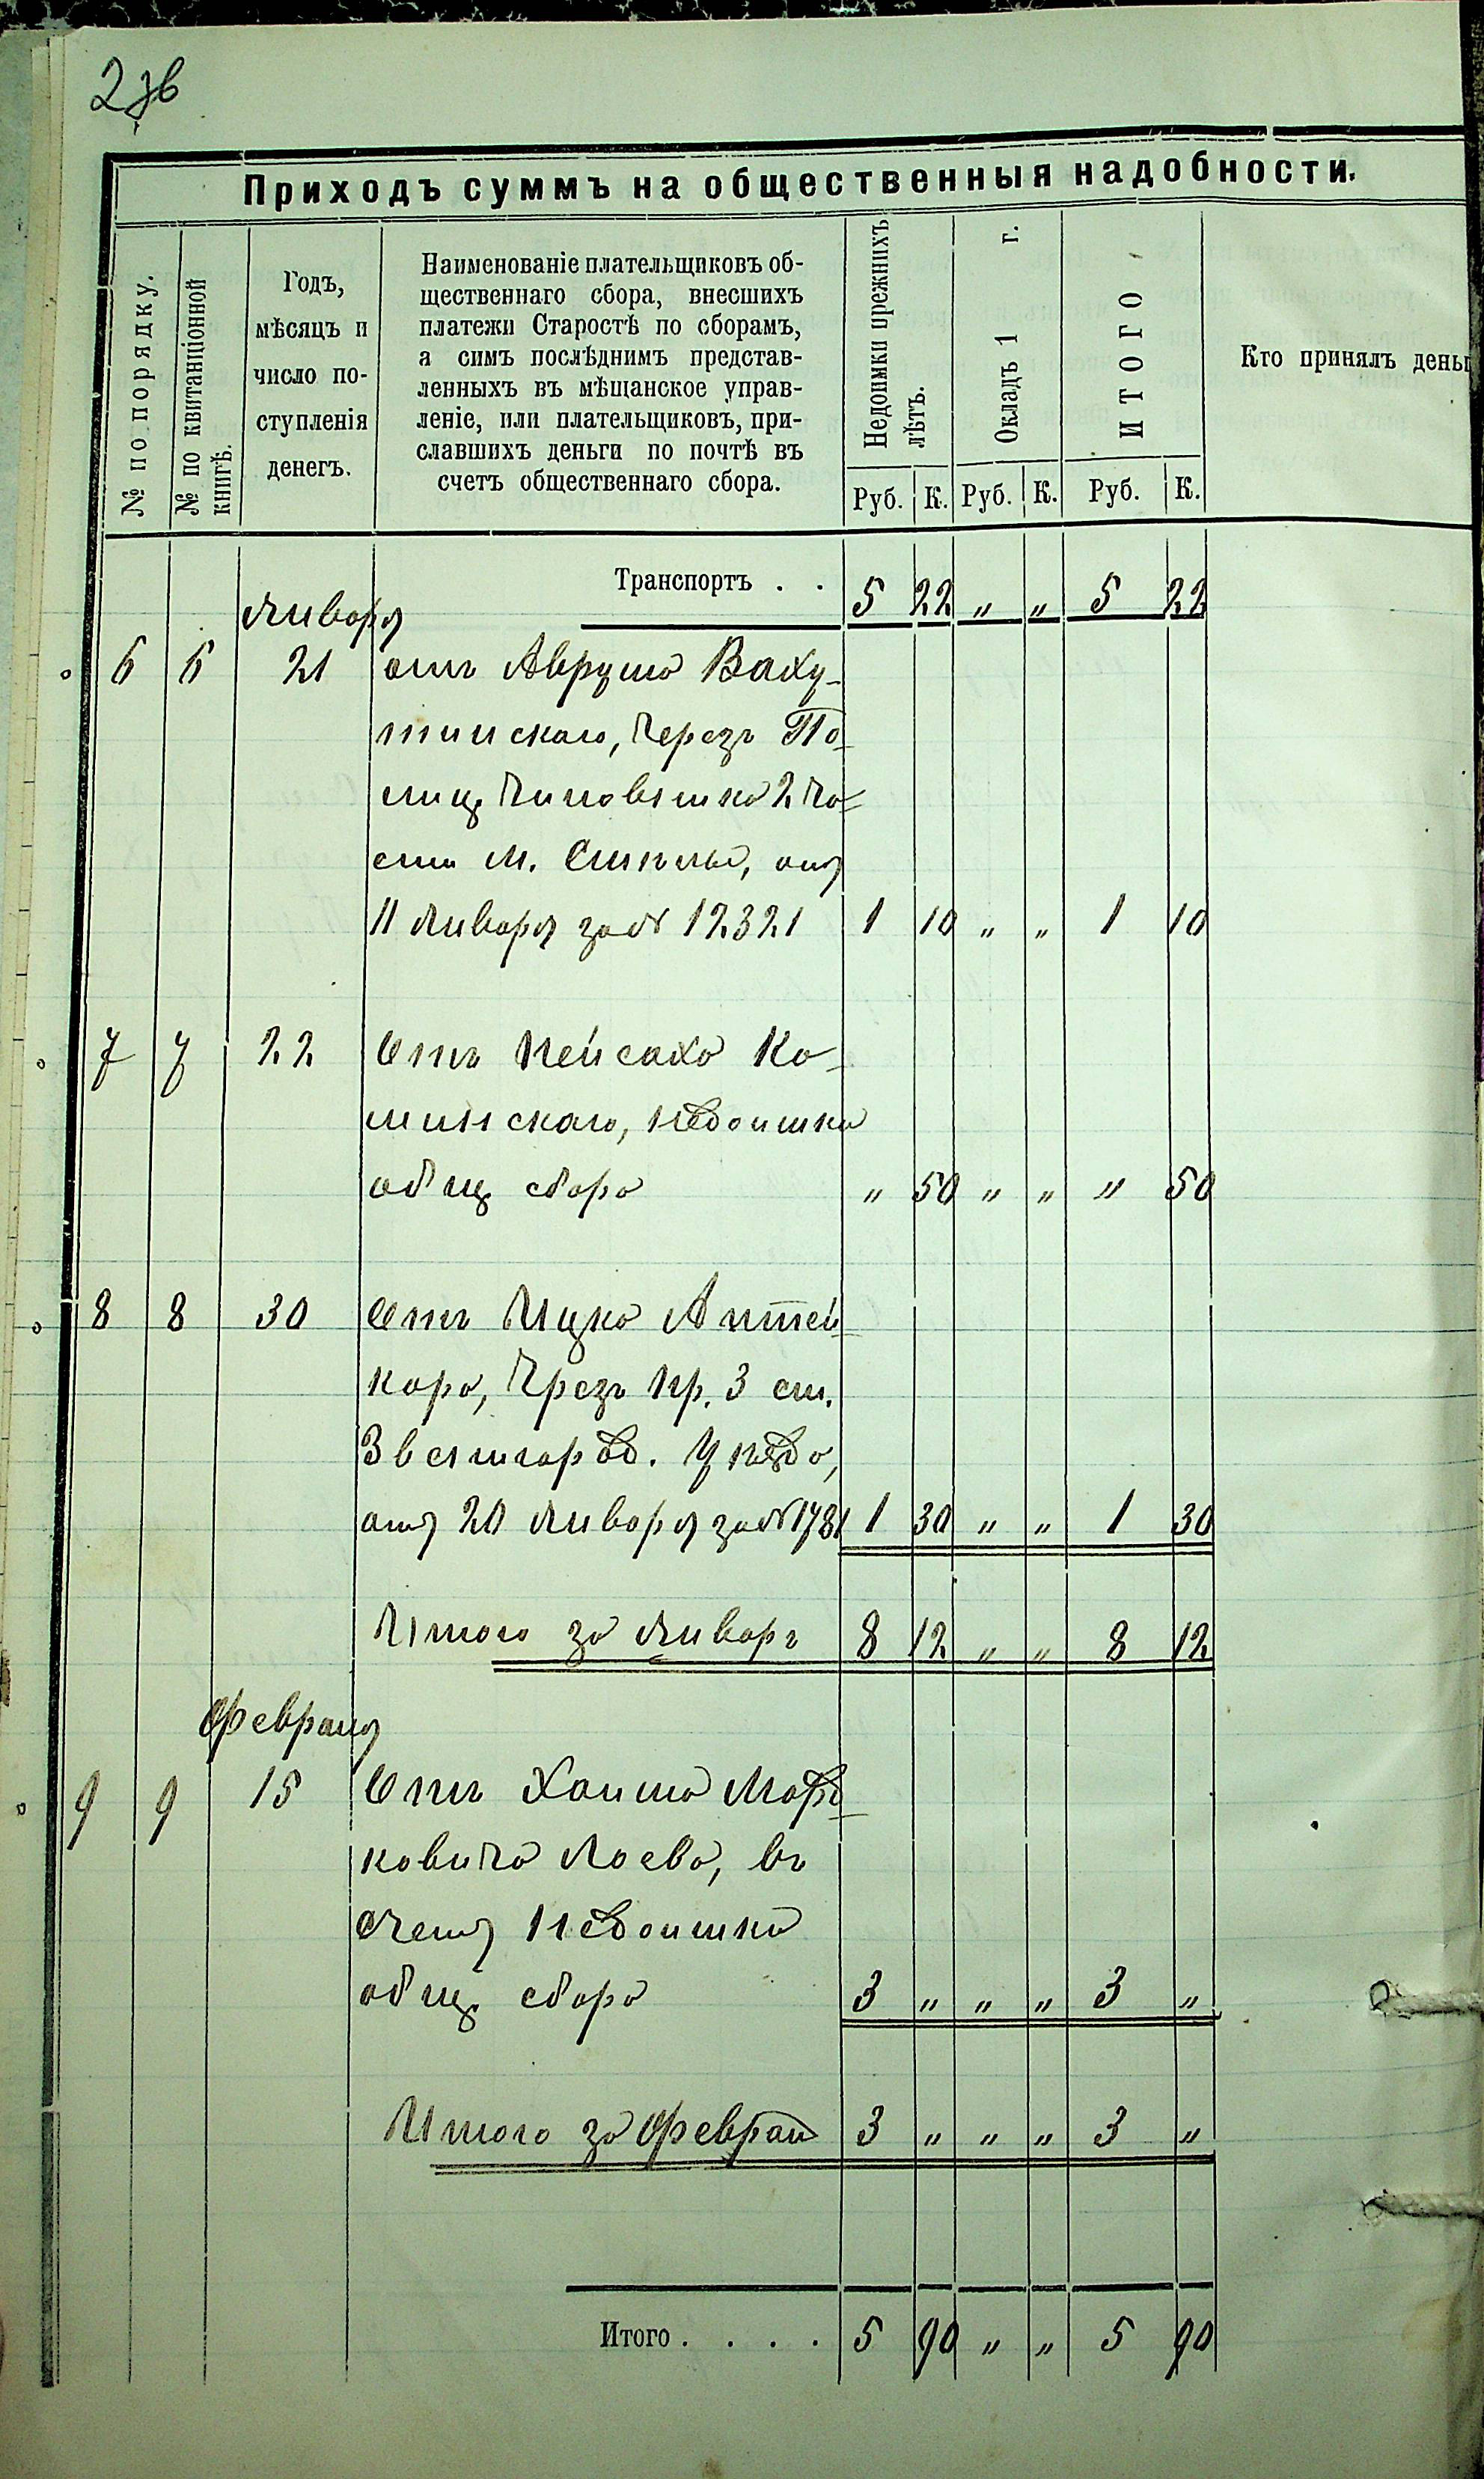 Приходъ суммъ на общественныя надобности.
№ по порядку.
№ по квитанціонной
книгѣ.
Годъ,
мѣсяцъ и
число по-
ступленія
денегъ.
Наименованіе плательщиковъ об-
щественнаго сбора, внесшихъ
платежи Старостѣ по сборамъ,
а симъ послѣднимъ представ-
ленныхъ въ мѣщанское управ-
леніе, или плательщиковъ, при-
славшихъ деньги по почтѣ въ
счетъ общественнаго сбора.
Недоимки прежнихъ
лѣтъ.
Окладъ 1 г.
ИТОГО
Кто принялъ деньг
Руб. К. Руб. К. Руб. К.
Транспортъ . . 5 22 „ „ 5 22
Января
6 6 21 отъ Аврума Ваху-
тинскаго, черезъ По
лиц. Чиновника 2 ча=
сти М. Смѣлы, отъ
11 Января за № 12321 1 10 „ „ 1 10
7 7 22 Отъ Пейсаха Ко-
минскаго, недоимки
общ. сбора „ 50 „ „ „ 50
8 8 30 Отъ Ицка Аптей
кара, чрезъ Пр. 3 ст.
Звенигород. уѣзда,
отъ 20 Января за № 1781 1 30 „ „ 1 30
Итого за Январь 8 12 „ „ 8 12
Февраля
9 9 15 Отъ Хаима Морд
ковича Лоева, въ
счетъ недоимки
общ. сбора 3 „ „ „ 3 „
Итого за Феврал 3 „ „ „ 3 „
Итого . . . . 5 90 „ „ 5 90